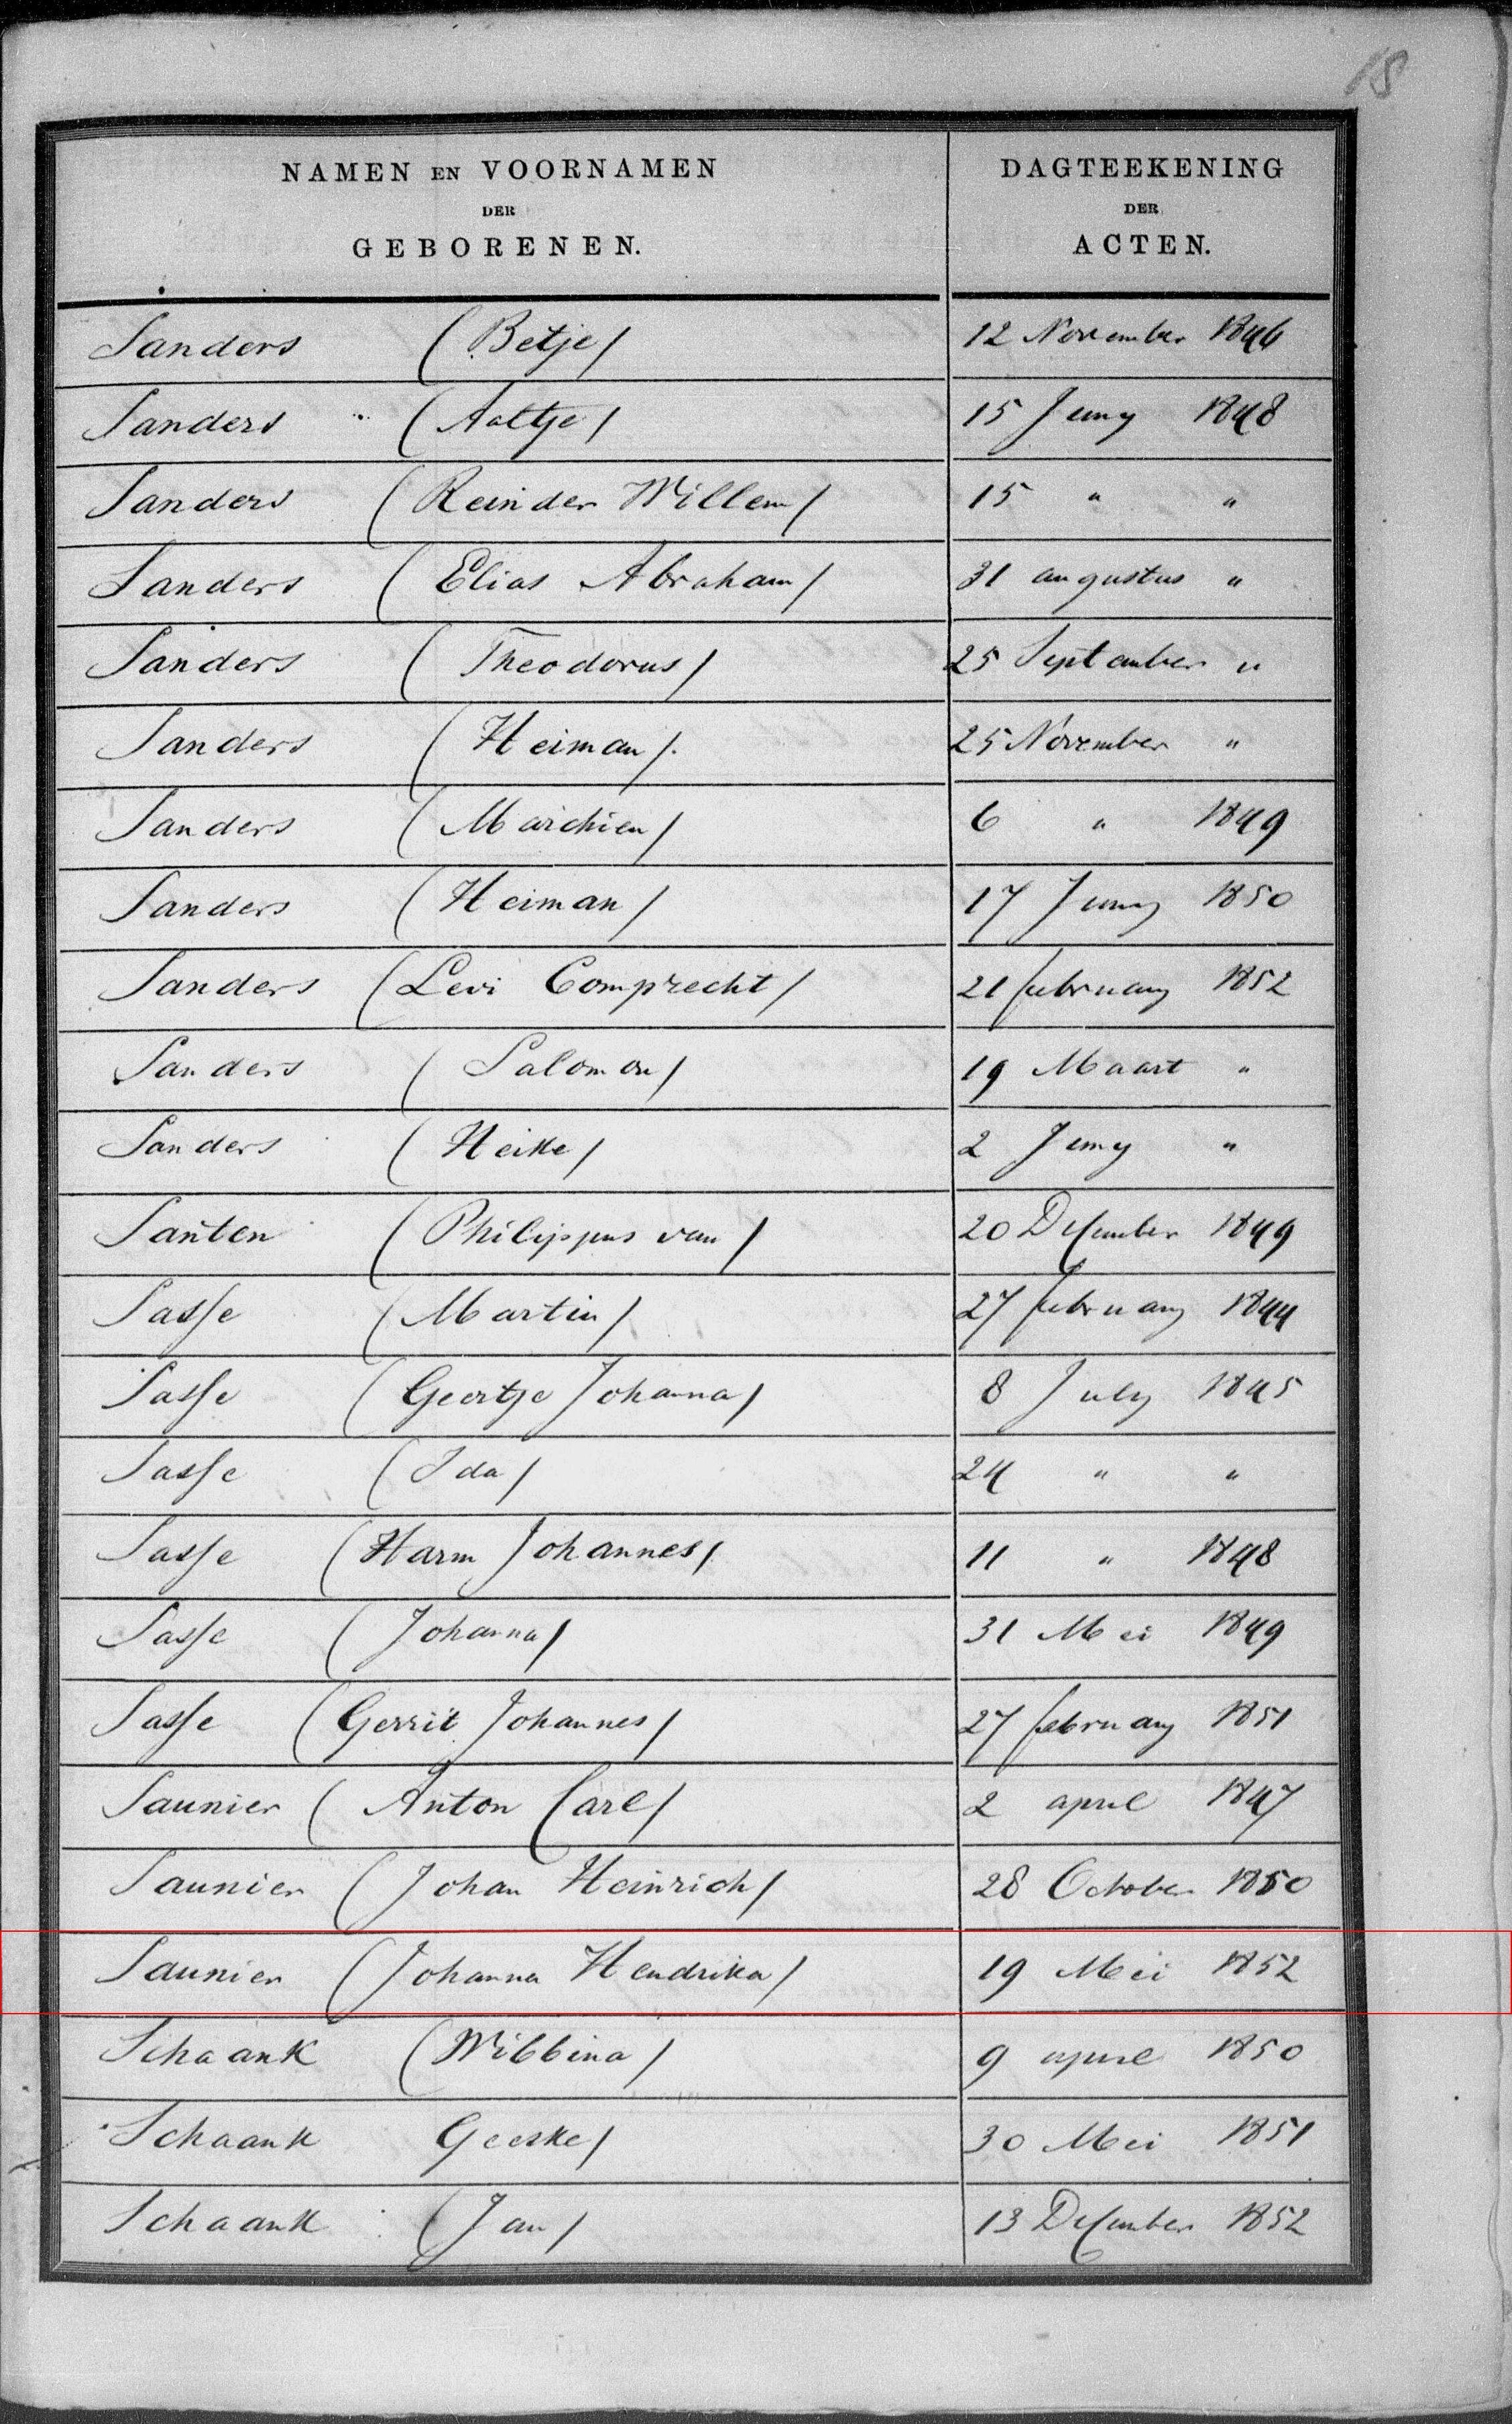 18
NAMEN EN VOORNAMEN
DER
GEBORENEN.
DAGTEEKENING
DER
ACTEN.
Sanders (Betje) 12 November 1846
Sanders (Aaltje) 15 Juny 1848
Sanders (Reinder Willem) 15 " "
Sanders (Elias Abraham) 31 augustus "
Sanders (Theodorus) 25 September "
Sanders (Heiman) 25 November "
Sanders (Marchien) 6 " 1849
Sanders (Heiman) 17 Juny 1850
Sanders (Levi Comprecht) 21 february 1852
Sanders (Salomon) 19 Maart "
Sanders (Heike) 2 Juny "
Santen (Philippus van) 20 December 1849
Sasse (Martin) 27 february 1844
Sasse (Geertje Johanna) 8 July 1845
Sasse (Ida) 24 " "
Sasse (Harm Johannes) 11 " 1848
Sasse (Johanna) 31 Mei 1849
Sasse (Gerrit Johannes) 27 february 1851
Saunier (Anton Carl) 2 april 1847
Saunier (Johan Heinrich) 28 October 1850
Saunier (Johanna Hendrika) 19 Mei 1852
Schaank (Wibbina) 9 april 1850
Schaank Geeske) 30 Mei 1851
Schaank (Jan) 13 December 1852